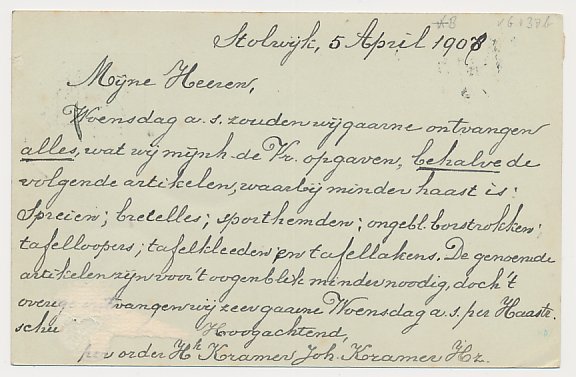 Stolwijk, 5 April 1908
Mijne Heeren,
Woensdag a. s. zouden wij gaarne ontvangen
alles, wat wij mijnh. de Vr. opgaven, behalve de
volgende artikelen, waarbij minder haast is:
Spreien; bretelles; sporthemden; ongebl. borstrokken;
tafelloopers; tafelkleeden en tafellakens. De genoemde
artikelen zijn voor 't oogenblik minder noodig, doch 't
overige ontvangen wij zeer gaarne Woensdag a. s. per Haastr.
schu
Hoogachtend,
per order Hk Kramer Joh. Kramer Hz.